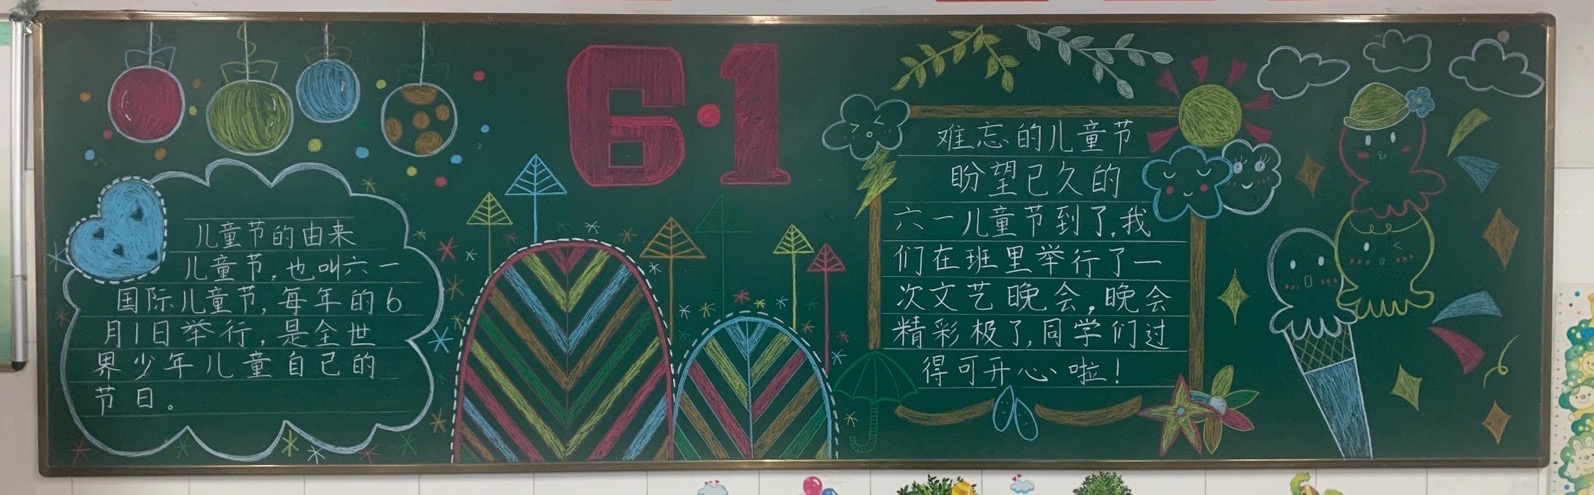 儿童节的由来
儿童节,也叫六一
国际儿童节,每年的6
月1日举行,是全世
界少年儿童自己的
节日。
6·1
难忘的儿童节
盼望已久的
六一儿童节到了,我
们在班里举行了一
次文艺晚会,晚会
精彩极了,同学们过
得可开心啦!